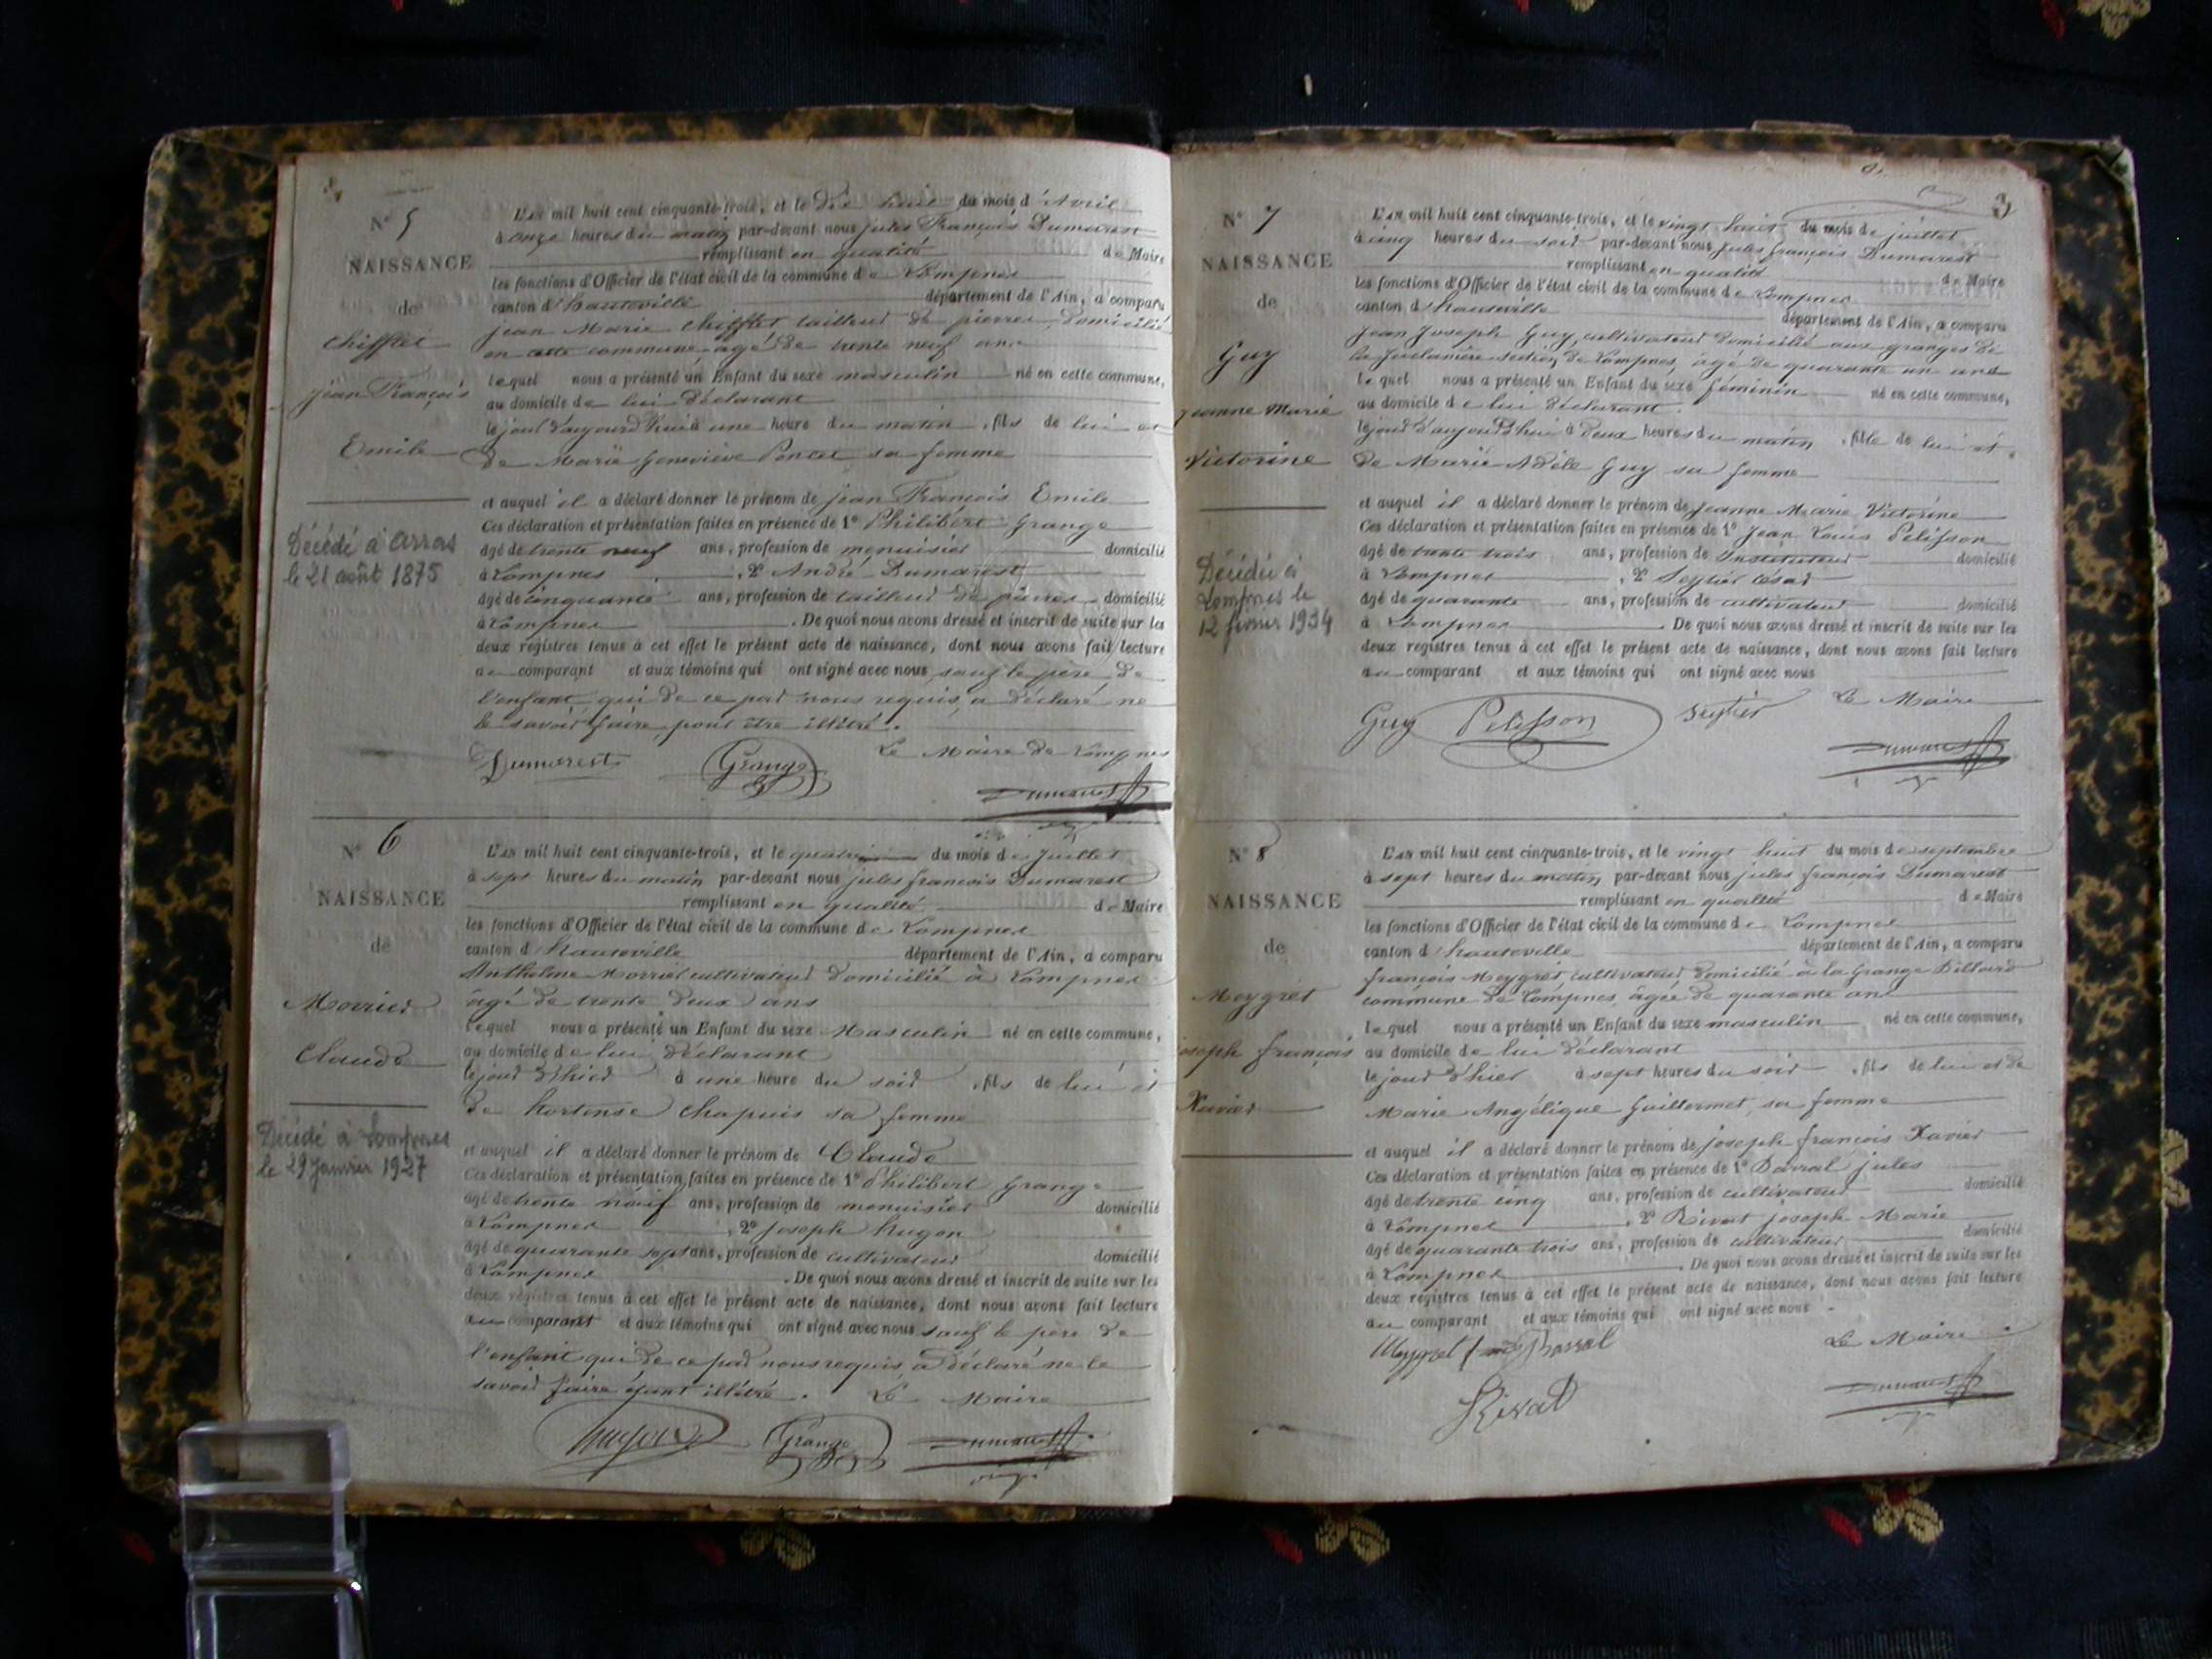 N° 5
NAISSANCE
de
Chifflet
jean François
Emile
Décédé à Arras
le 21 août 1875
L'AN mil huit cent cinquante-trois, et le dix huit du mois d'Avril
à onze heures du matin par-devant nous jules François Dumarest
remplissant en qualité de Maire
les fonctions d'Officier de l'état civil de la commune de Lompnes
canton d'hauteville département de l'Ain, a comparu
jean Marie Chifflet tailleur de pierres, domicilié
en cette commune âgé de trente neuf ans
lequel nous a présenté un Enfant du sexe masculin né en cette commune,
au domicile de lui déclarant
le jour d'aujourd'hui à une heure du matin, fils de lui et
de Marie Geneviève Poncet sa femme
et auquel il a déclaré donner le prénom de jean François Emile
Ces déclaration et présentation faites en présence de 1° Philibert Grange
âgé de trente neuf ans, profession de menuisier domicilié
à Lompnes, 2° André Dumarest
âgé de cinquante ans, profession de tailleur de pierres domicilié
à Lompnes. De quoi nous avons dressé et inscrit de suite sur les
deux registres tenus à cet effet le présent acte de naissance, dont nous avons fait lecture
au comparant et aux témoins qui ont signé avec nous sauf le père de
l'enfant qui de ce par nous requis, a déclaré ne
le savoir faire, pour être illétré.
Le Maire de Lompnes
Dumarest Grange Dumarest
N° 6
NAISSANCE
de
Morrier
Claude
Décédé à Lompnes
le 29 janvier 1927
L'AN mil huit cent cinquante-trois, et le quatre du mois de juillet
à sept heures du matin par-devant nous jules françois Dumarest
remplissant en qualité de Maire
les fonctions d'Officier de l'état civil de la commune de Lompnes
canton d'hauteville département de l'Ain, a comparu
Anthelme Morrier cultivateur domicilié à Lompnes
âgé de trente deux ans
lequel nous a présenté un Enfant du sexe Masculin né en cette commune,
au domicile de lui déclarant
le jour d'hier à une heure du soir, fils de lui et
de hortense Chapuis sa femme
et auquel il a déclaré donner le prénom de Claude
Ces déclaration et présentation faites en présence de 1° Philibert Grange
âgé de trente neuf ans, profession de menuisier domicilié
à Lompnes, 2° joseph hugon
âgé de quarante sept ans, profession de cultivateur domicilié
à Lompnes. De quoi nous avons dressé et inscrit de suite sur les
deux registres tenus à cet effet le présent acte de naissance, dont nous avons fait lecture
au comparant et aux témoins qui ont signé avec nous sauf le père de
l'enfant qui de ce par nous requis a déclaré ne le
savoir faire étant illétré. Le Maire
hugon Grange Dumarest
3
N° 7
NAISSANCE
de
Guy
jeanne Marie
Victorine
Décédée à
Lompnes le
12 février 1934
L'AN mil huit cent cinquante-trois, et le vingt huit du mois de juillet
à cinq heures du soir par-devant nous jules françois Dumarest
remplissant en qualité de Maire
les fonctions d'Officier de l'état civil de la commune de Lompnes
canton d'hauteville département de l'Ain, a comparu
jean joseph Guy, cultivateur domicilié aux granges de
la section de Lompnes, âgé de quarante un ans
lequel nous a présenté un Enfant du sexe féminin né en cette commune,
au domicile de lui déclarant.
le jour d'aujourd'hui à deux heures du matin, fille de lui et
de Marie Adèle Guy sa femme
et auquel il a déclaré donner le prénom de jeanne Marie Victorine
Ces déclaration et présentation faites en présence de 1° jean Louis Pelisson
âgé de trente trois ans, profession de Instituteur domicilié
à Lompnes, 2° Seytier César
âgé de quarante ans, profession de cultivateur domicilié
à Lompnes. De quoi nous avons dressé et inscrit de suite sur les
deux registres tenus à cet effet le présent acte de naissance, dont nous avons fait lecture
au comparant et aux témoins qui ont signé avec nous
Le Maire
Guy Pelisson Seytier Dumarest
N° 8
NAISSANCE
de
Meygret
joseph françois
Xavier
L'AN mil huit cent cinquante-trois, et le vingt huit du mois de septembre
à sept heures du matin, par-devant nous jules françois Dumarest
remplissant en qualité de Maire
les fonctions d'Officier de l'état civil de la commune de Lompnes
canton d'hauteville département de l'Ain, a comparu
françois Meygret, cultivateur domicilié à la Grange Billard
commune de Lompnes, âgée de quarante ans
lequel nous a présenté un Enfant du sexe masculin né en cette commune,
au domicile de lui déclarant
le jour d'hier à sept heures du soir, fils de lui et de
Marie Angélique Guillermet, sa femme
et auquel il a déclaré donner le prénom de joseph françois Xavier
Ces déclaration et présentation faites en présence de 1° Barral jules
âgé de trente cinq ans, profession de cultivateur domicilié
à Lompnes, 2° Rivat joseph Marie
âgé de quarante trois ans, profession de cultivateur domicilié
à Lompnes. De quoi nous avons dressé et inscrit de suite sur les
deux registres tenus à cet effet le présent acte de naissance, dont nous avons fait lecture
au comparant et aux témoins qui ont signé avec nous
Le Maire
Meygret Barral
Rivat Dumarest